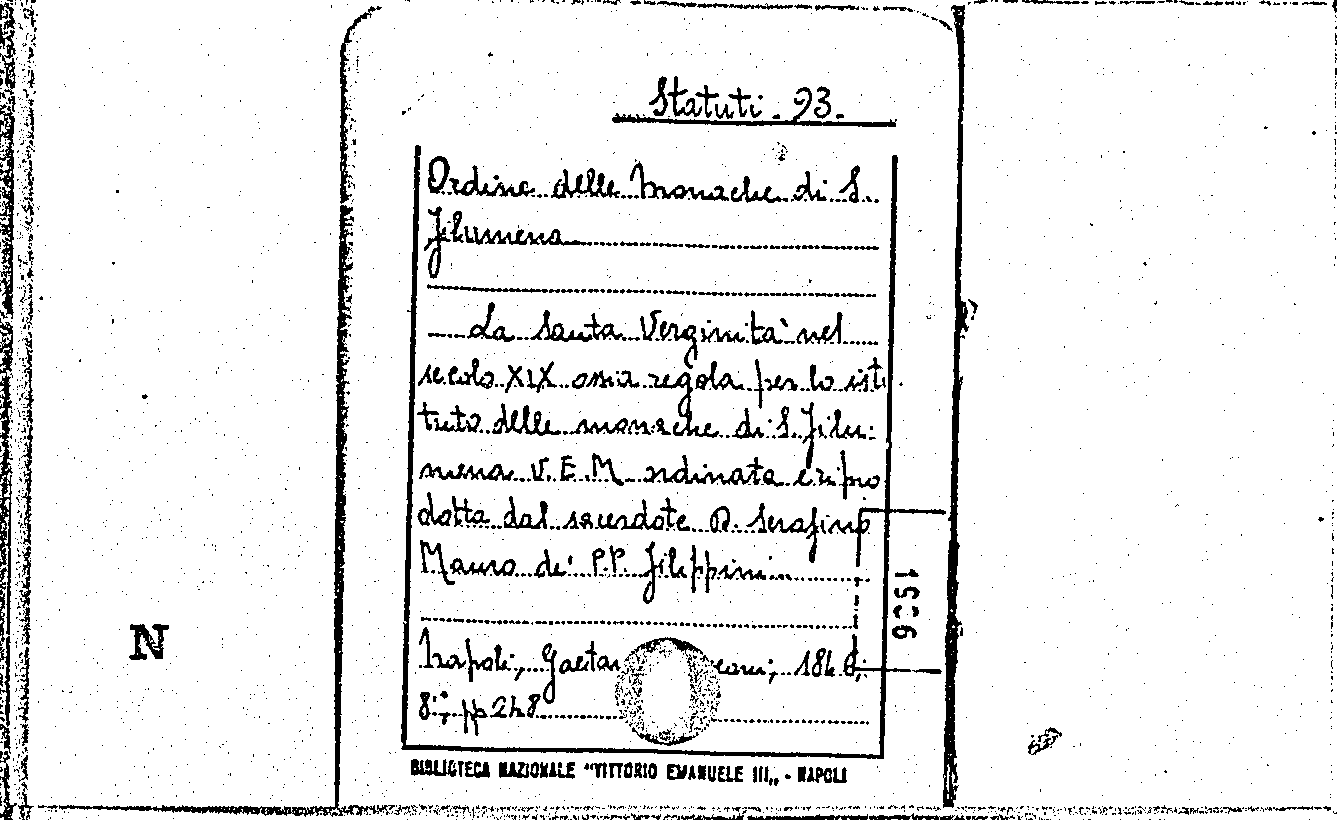 Statuti. 93.
Ordine delle Monache di S.
Filumena
La santa Verginità nel
secolo XIX ossia regola per lo isti
tuto delle monache di S. Filu:
mena V. E. M. ordinata e ripro
dotta dal sacerdote D. Serafino
Mauro de' P.P. Filippini
Napoli, 
8°; pp 248
BIBLIOTECA NAZIONALE "VITTORIO EMANUELE III,, - NAPOLI
N